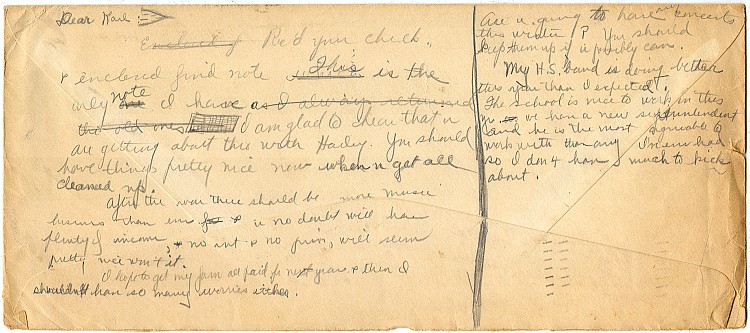 Dear Karl :
Rec'd your check.
& enclosed find note. This is the
only note I have as I always returned
the old ones I am glad to hear that u
are getting about this with Harley. You should
have things pretty nice now when u get all
cleaned up.
After the war there should be more music
business than ever & u no doubt will have
plenty of income, & no int & no prin, will seem
pretty nice won't it.
I hope to get my farm all paid for next year & then I
shouldn't have so many worries either.
Are u going to have any concerts
this winter? You should
keep them up if u possibly can.
My H.S. band is doing better
this year than I expected.
The school is nice to work in this
yr we have a new superintendent
and he is the most agreeable to
work with than any I've ever had
so I don't have much to kick
about.